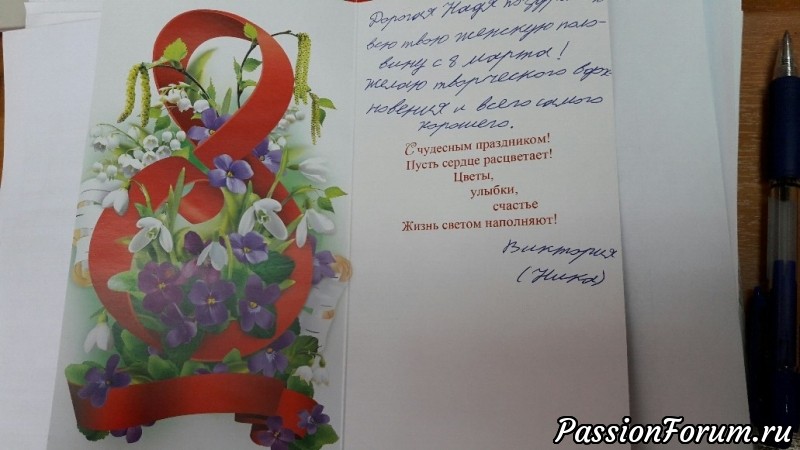 Дорогая Надя
всю твою женскую поло-
вину с 8 марта!
Желаю творческого вдох-
новения и всего самого
хорошего.
С чудесным праздником!
Пусть сердце расцветает!
Цветы,
улыбки,
счастье
Жизнь светом наполняют!
Виктория
(Ника)
PassionForum.ru